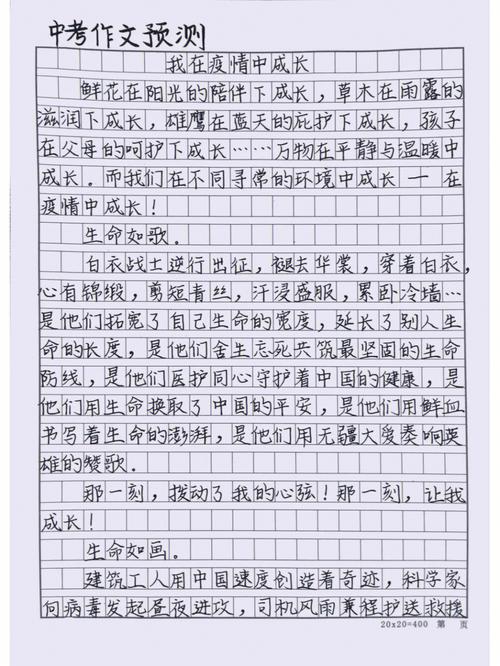 中考作文预测
我在疫情中成长
鲜花在阳光的陪伴下成长，草木在雨露的
滋润下成长，雄鹰在蓝天的庇护下成长，孩子
在父母的呵护下成长……万物在平静与温暖中
成长。而我们在不同寻常的环境中成长一在
疫情中成长！
生命如歌。
白衣战士逆行出征，褪去华裳，穿着白衣，
心有锦缎，剪短青丝，汗浸盛服，累卧冷墙…
是他们拓宽了自己生命的宽度，延长了别人生
命的长度，是他们舍生忘死共筑最坚固的生命
防线，是他们医护同心守护着中国的健康，是
他们用生命换取了中国的平安，是他们用鲜血
书写着生命的澎湃，是他们用无疆大爱奏响英
雄的赞歌．
那一刻，拨动了我的心弦！那一刻，让我
成长！
生命如画。
建筑工人用中国速度创造着奇迹，科学家
向病毒发起昼夜进攻，司机风雨兼程护送救援
20x20=400 第 页